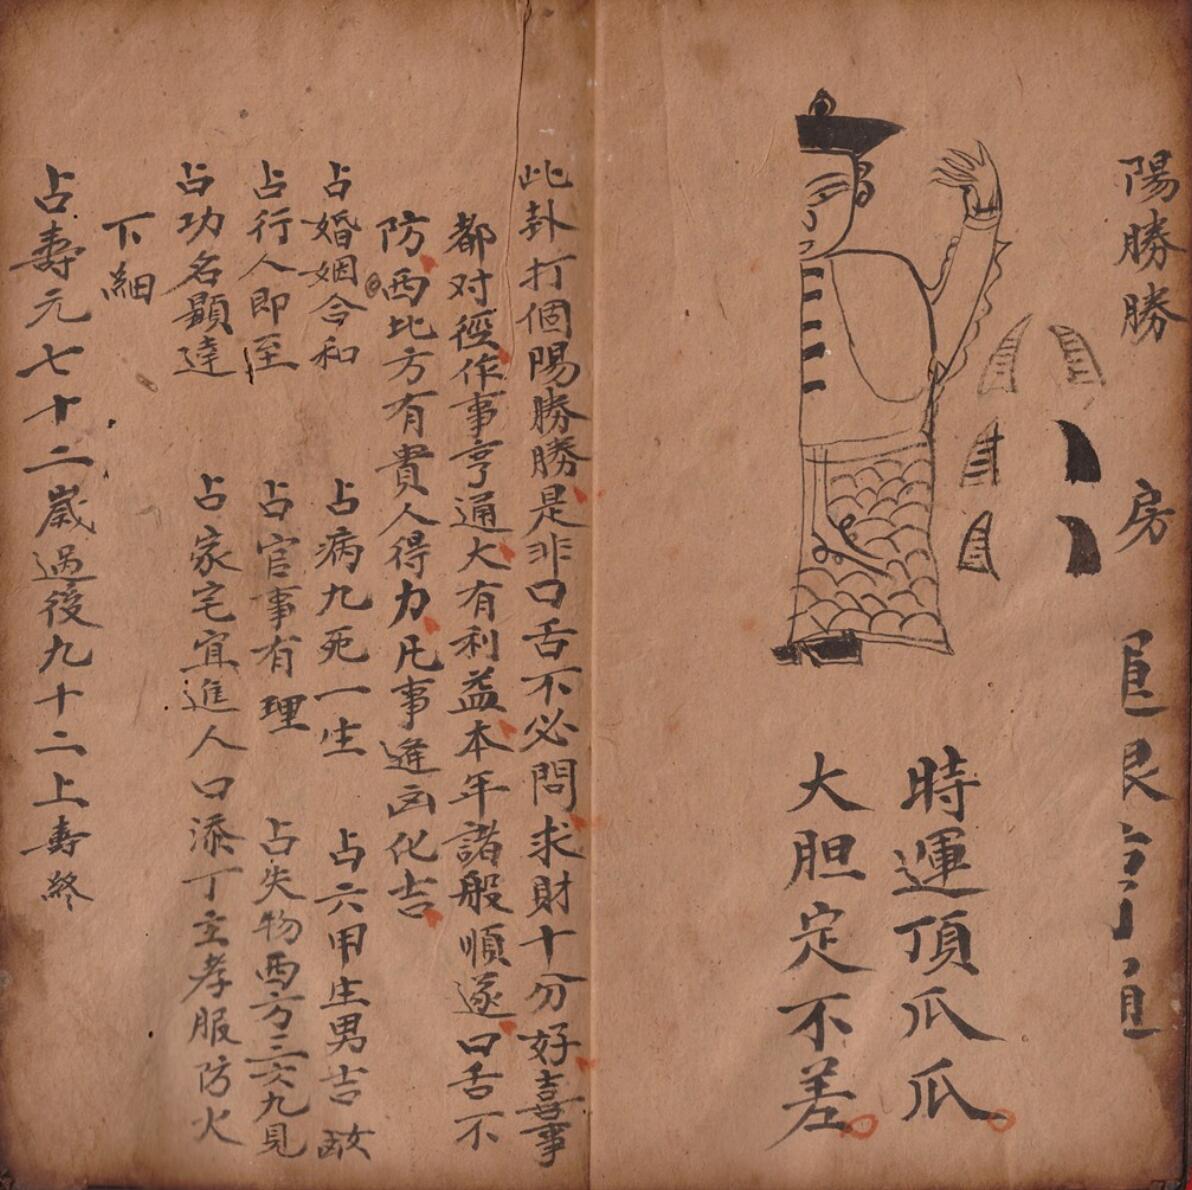 陽勝勝
房
時運頂爪爪
大胆定不差
此卦打個陽勝勝是非口舌不必問求財十分好喜事
都对徑作事亨通大有利益本年諸般順遂口舌不
防西北方有貴人得力凡事逢凶化吉
占婚姻合和 占病九死一生 占六甲生男吉
占行人即至 占官事有理 占失物西方三六九見
占功名顯達 占家宅宜進人口添丁主孝服防火
下細
占壽元七十二歲過後九十二上壽終